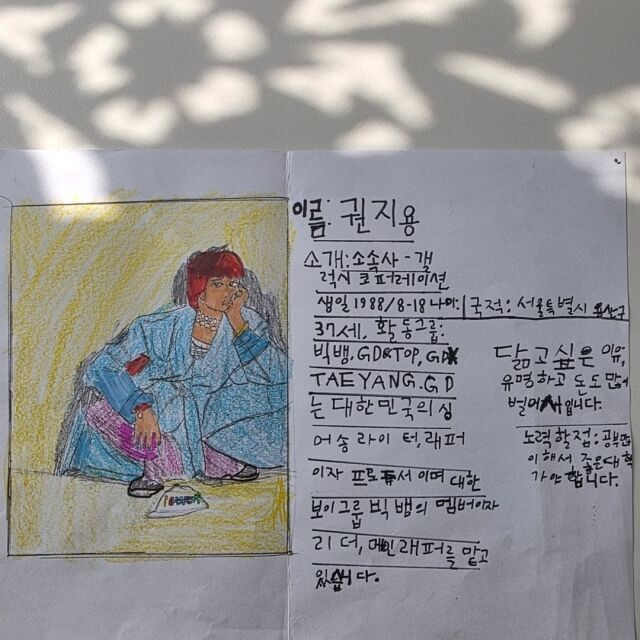 이름: 권지용
소개: 소속사 - 갤
럭시 코퍼레이션
생일 1988/8-18 나이:
37세. 활동그룹:
빅뱅. GD&TOP, GDX
TAEYANG. GD
는 대한민국의 싱
어송라이터, 래퍼
이자 프로듀서 이며 대한
보이그룹 빅뱅의 멤버이자
리더, 메인래퍼를 맡고
있습니다.
국적: 서울특별시
닮고싶은 이유,
유명하고 돈도 많이
벌어서입니다.
노력할점: 공부
이해서 좋은대학
가야 합니다.